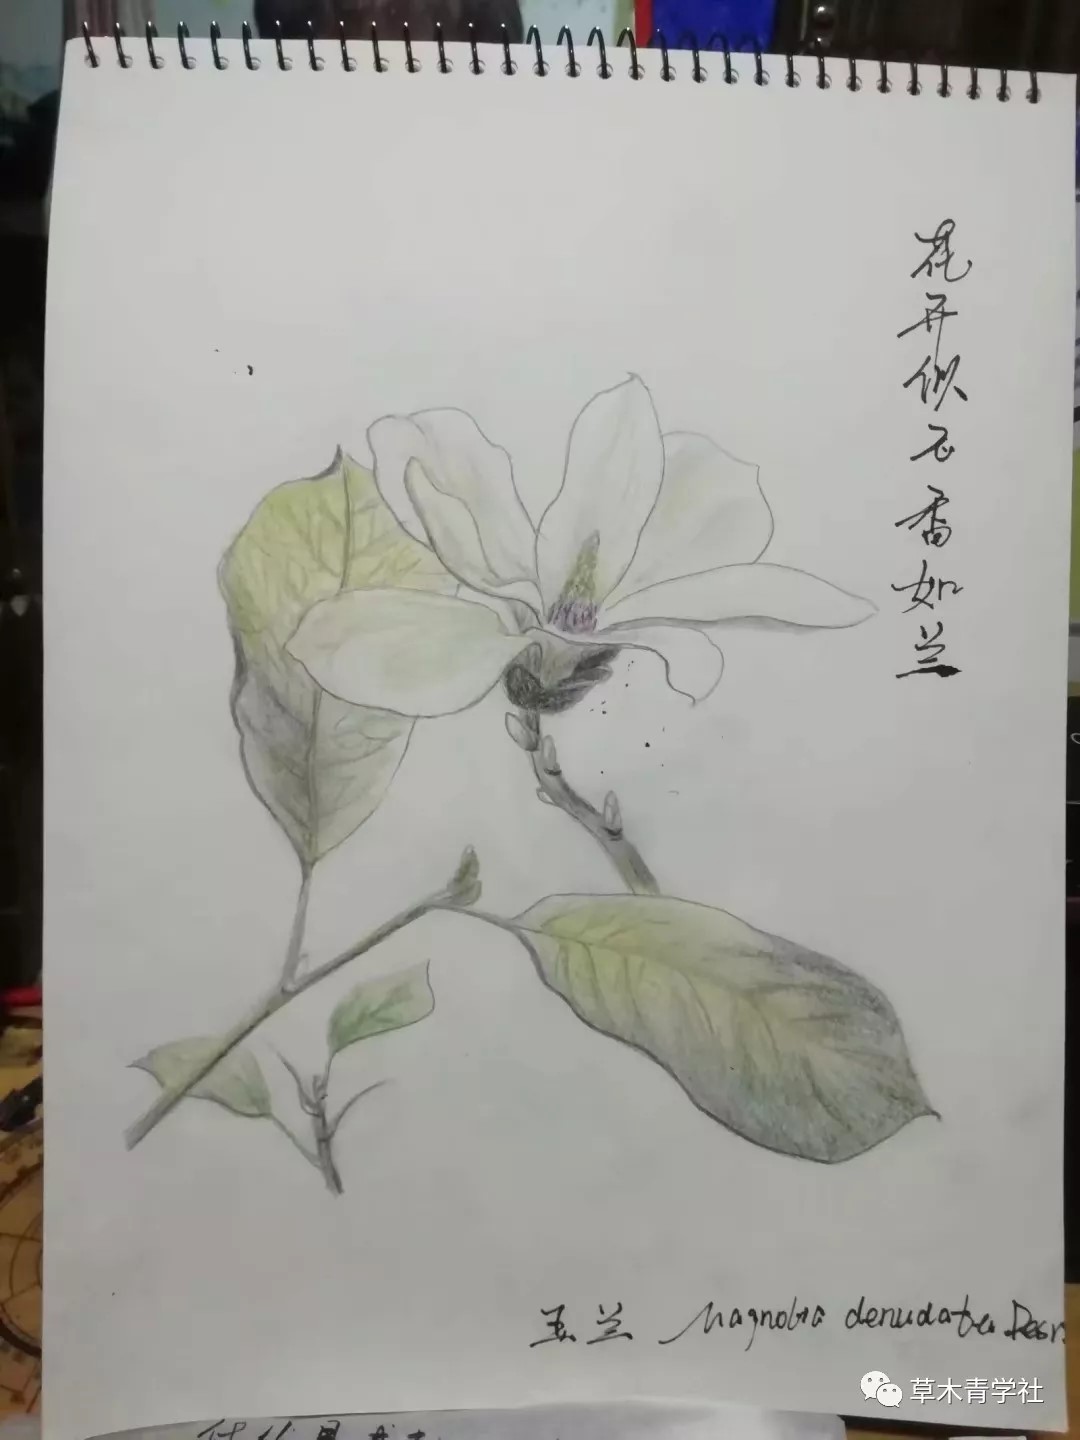 花开似玉香如兰
玉兰 Magnolia denudata. Desr
草木青学社